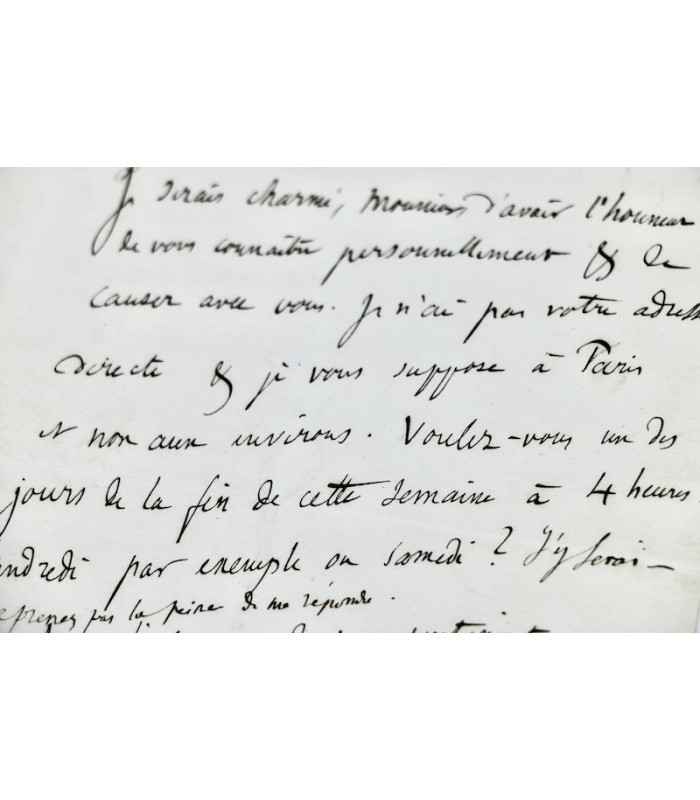 Je serais charmé, monsieur d'avoir l'honneur
de vous connaître personnellement & de
causer avec vous. Je n'ai pas votre adress
directe & je vous suppose à Paris
et non aux environs. Voulez-vous un des
jours de la fin de cette semaine à 4 heures
endredi par exemple ou samedi? J'y serai –
e prenez pas la peine de me répondre.